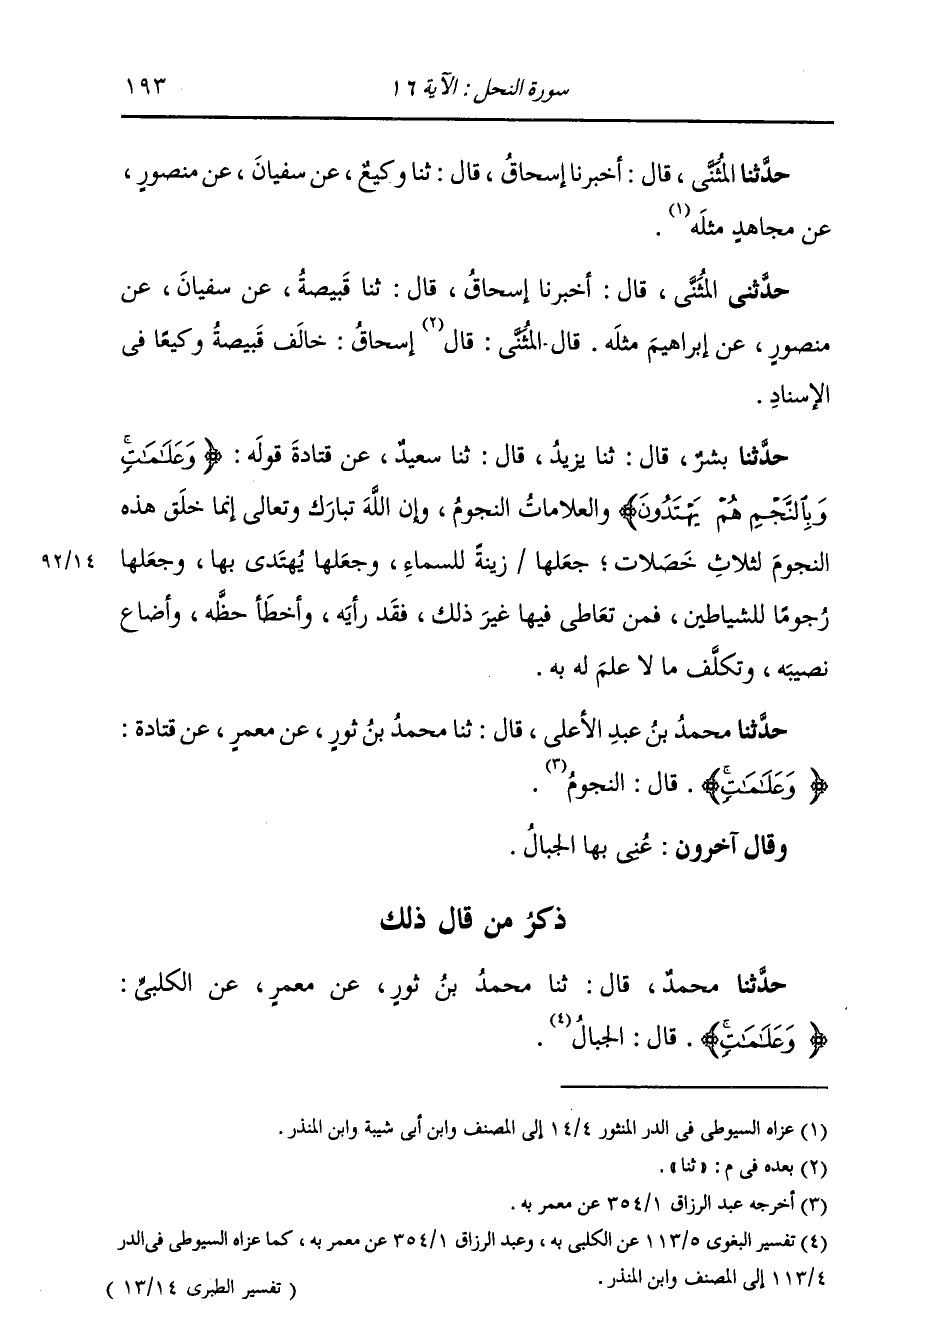 سورة النحل : الآية ١٦
١٩٣
حدَّثنا المُثَنَّى ، قال : أخبرنا إسحاقُ ، قال : ثنا وكيعٌ ، عن سفيانَ ، عن منصورٍ ،
عن مجاهدٍ مثلَه(١) .
حدَّثنى المُثَنَّى ، قال : أخبرنا إسحاقُ ، قال : ثنا قَبيصةُ ، عن سفيانَ ، عن
منصورٍ ، عن إبراهيمَ مثلَه . قال المُثَنَّى : قال(٢) إسحاقُ : خالَف قَبيصةُ وكيعًا فى
الإسنادِ .
حدَّثنا بشرٌ ، قال : ثنا يزيدُ ، قال : ثنا سعيدٌ ، عن قتادةَ قولَه : ﴿ وَعَلَٰمَٰتٍۚ
وَبِٱلنَّجۡمِ هُمۡ يَهۡتَدُونَ﴾ والعلاماتُ النجومُ ، وإن اللَّهَ تبارَك وتعالى إنما خلَق هذه
النجومَ لثلاثِ خَصَلات ؛ جعَلها / زينةً للسماءِ ، وجعَلها يُهتَدى بها ، وجعَلها
٩٢/١٤
رُجومًا للشياطين ، فمن تعَاطى فيها غيرَ ذلك ، فقَد رأيَه ، وأخطَأ حظَّه ، وأضاع
نصيبَه ، وتكلَّف ما لا علمَ له به .
حدَّثنا محمدُ بنُ عبدِ الأعلى ، قال : ثنا محمدُ بنُ ثورٍ ، عن معمرٍ ، عن قتادة :
﴿ وَعَلَٰمَٰتٍۚ﴾ . قال : النجومُ(٣) .
وقال آخرون : عُنِى بها الجبالُ .
ذكرُ من قال ذلك
حدَّثنا محمدٌ ، قال : ثنا محمدُ بنُ ثورٍ ، عن معمرٍ ، عن الكلبىِّ :
﴿ وَعَلَٰمَٰتٍۚ﴾ . قال : الجبالُ(٤) .
(١) عزاه السيوطى فى الدر المنثور ١٤/٤ إلى المصنف وابن أبى شيبة وابن المنذر .
(٢) بعده فى م : « ثنا » .
(٣) أخرجه عبد الرزاق ٣٥٤/١ عن معمر به .
(٤) تفسير البغوى ١١٣/٥ عن الكلبى به ، وعبد الرزاق ٣٥٤/١ عن معمر به ، كما عزاه السيوطى فى الدر
١١٣/٤ إلى المصنف وابن المنذر .
( تفسير الطبرى ١٣/١٤ )